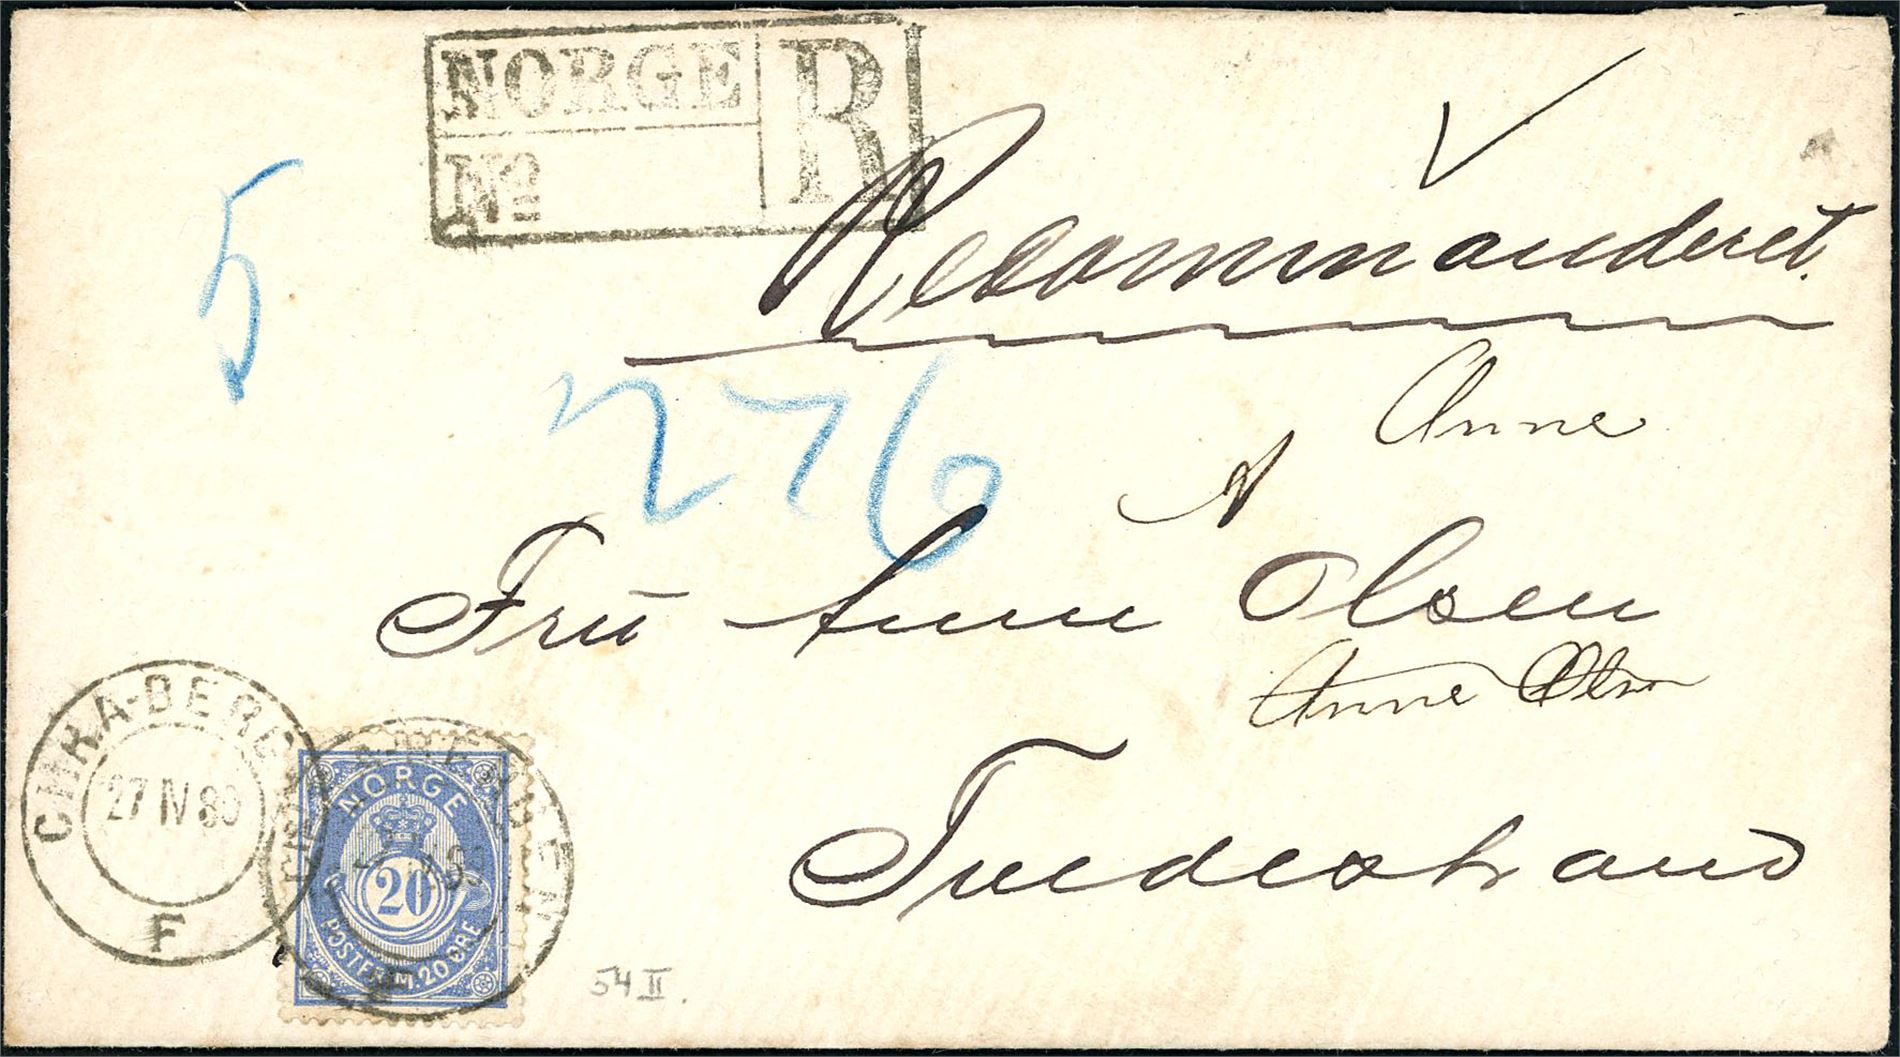 NORGE R
Nº
5
Recommanderet.
276
Anne
Fru Anne Olsen
Anne Olsen
Tvedestrand
CHRA-BERG
27 IV 89
F
NORGE
20
POSTFRIM. 20 ØRE
54 II.